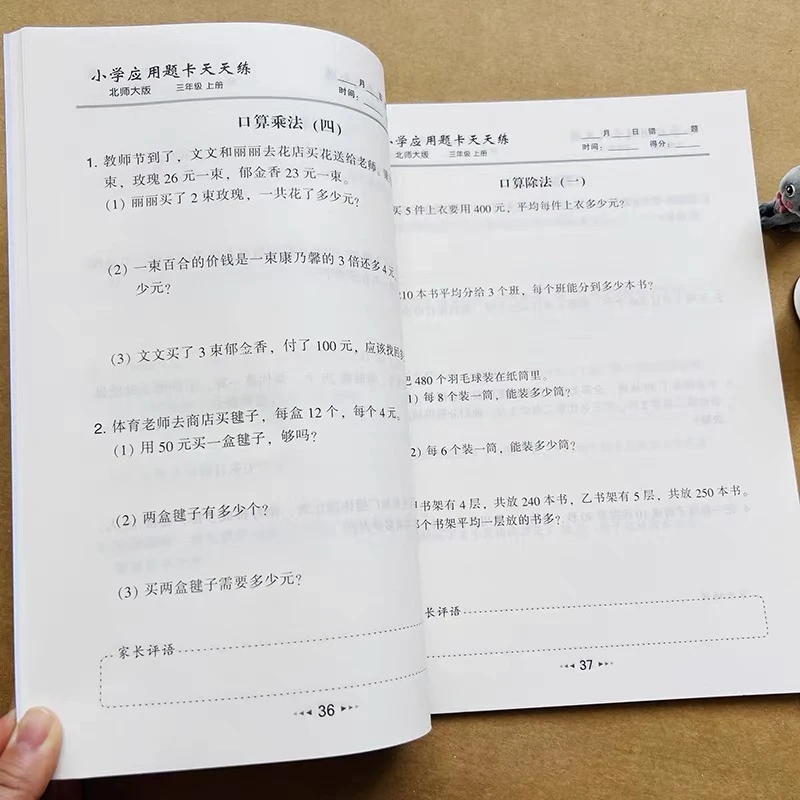 小学应用题卡天天练
北师大版 三年级 上册
月
时间：
口算乘法（四）
1. 教师节到了，文文和丽丽去花店买花送给老师。
束，玫瑰 26 元一束，郁金香 23 元一束。
(1) 丽丽买了 2 束玫瑰，一共花了多少元？
(2) 一束百合的价钱是一束康乃馨的 3 倍还多 4 元，
少元？
(3) 文文买了 3 束郁金香，付了 100 元，应该找回
2. 体育老师去商店买毽子，每盒 12 个，每个 4 元。
(1) 用 50 元买一盒毽子，够吗？
(2) 两盒毽子有多少个？
(3) 买两盒毽子需要多少元？
家长评语
36
小学应用题卡天天练
北师大版 三年级 上册
月 日 错 题
时间： 得分：
口算除法（一）
买 5 件上衣要用 400 元，平均每件上衣多少元？
10 本书平均分给 3 个班，每个班能分到多少本书？
把 480 个羽毛球装在纸筒里。
1) 每 8 个装一筒，能装多少筒？
2) 每 6 个装一筒，能装多少筒？
书架有 4 层，共放 240 本书，乙书架有 5 层，共放 250 本书。
个书架平均一层放的书多？
长评语
37